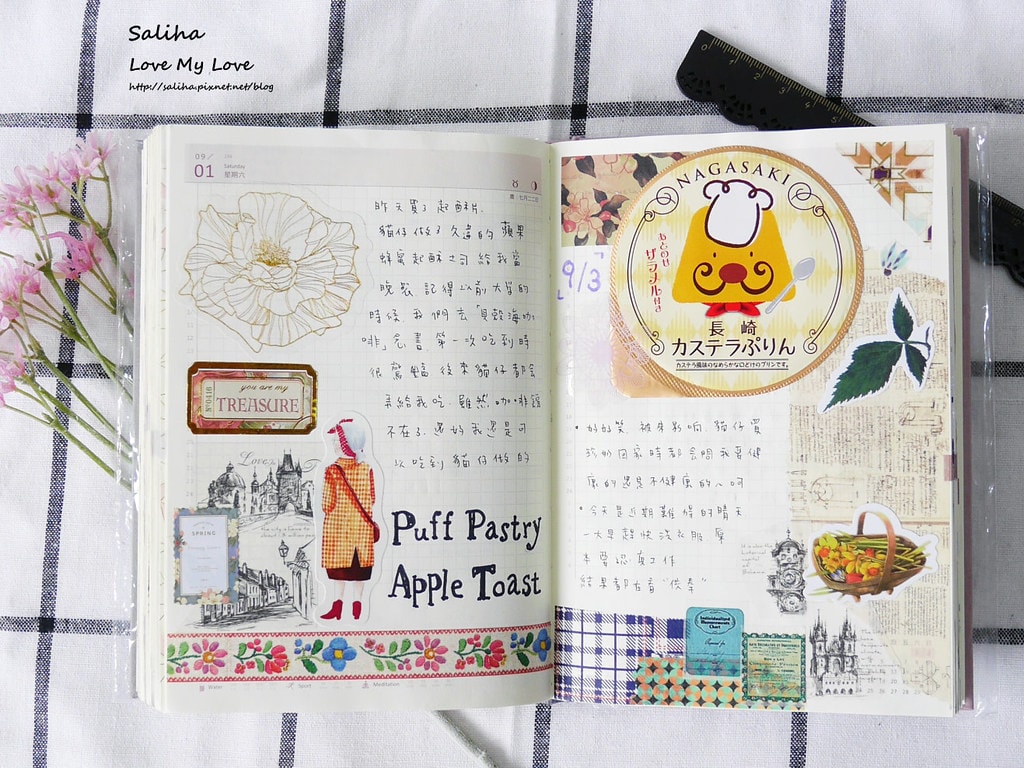 Saliha
Love My Love
http://saliha.pixnet.net/blog
09/
01
Saturday
星期六
昨天買了起酥片.
貓仔做了久違的 蘋果
蜂蜜起酥土司 給我當
晚餐 記得以前大學的
時候 我們去「貝殼海咖
啡」念書 第一次吃到時
很驚豔 後來貓仔都會
弄給我吃 雖然咖啡館
不在了. 還好我還是可
以吃到貓仔做的
you are my
TREASURE
Love
SPRING
Puff Pastry
Apple Toast
Water
Sport
Meditation
9/3
NAGASAKI
ザラメ付き
長崎
カステラぷりん
カステラ風味のなめらかな口どけのプリンです。
買
奶奶回家時都會問我要健
康的還是不健康的~呵
今天是近期難得的晴天
一大早趕快洗衣服
本要認真工作
結果都在看
0 1 2 3 4 5